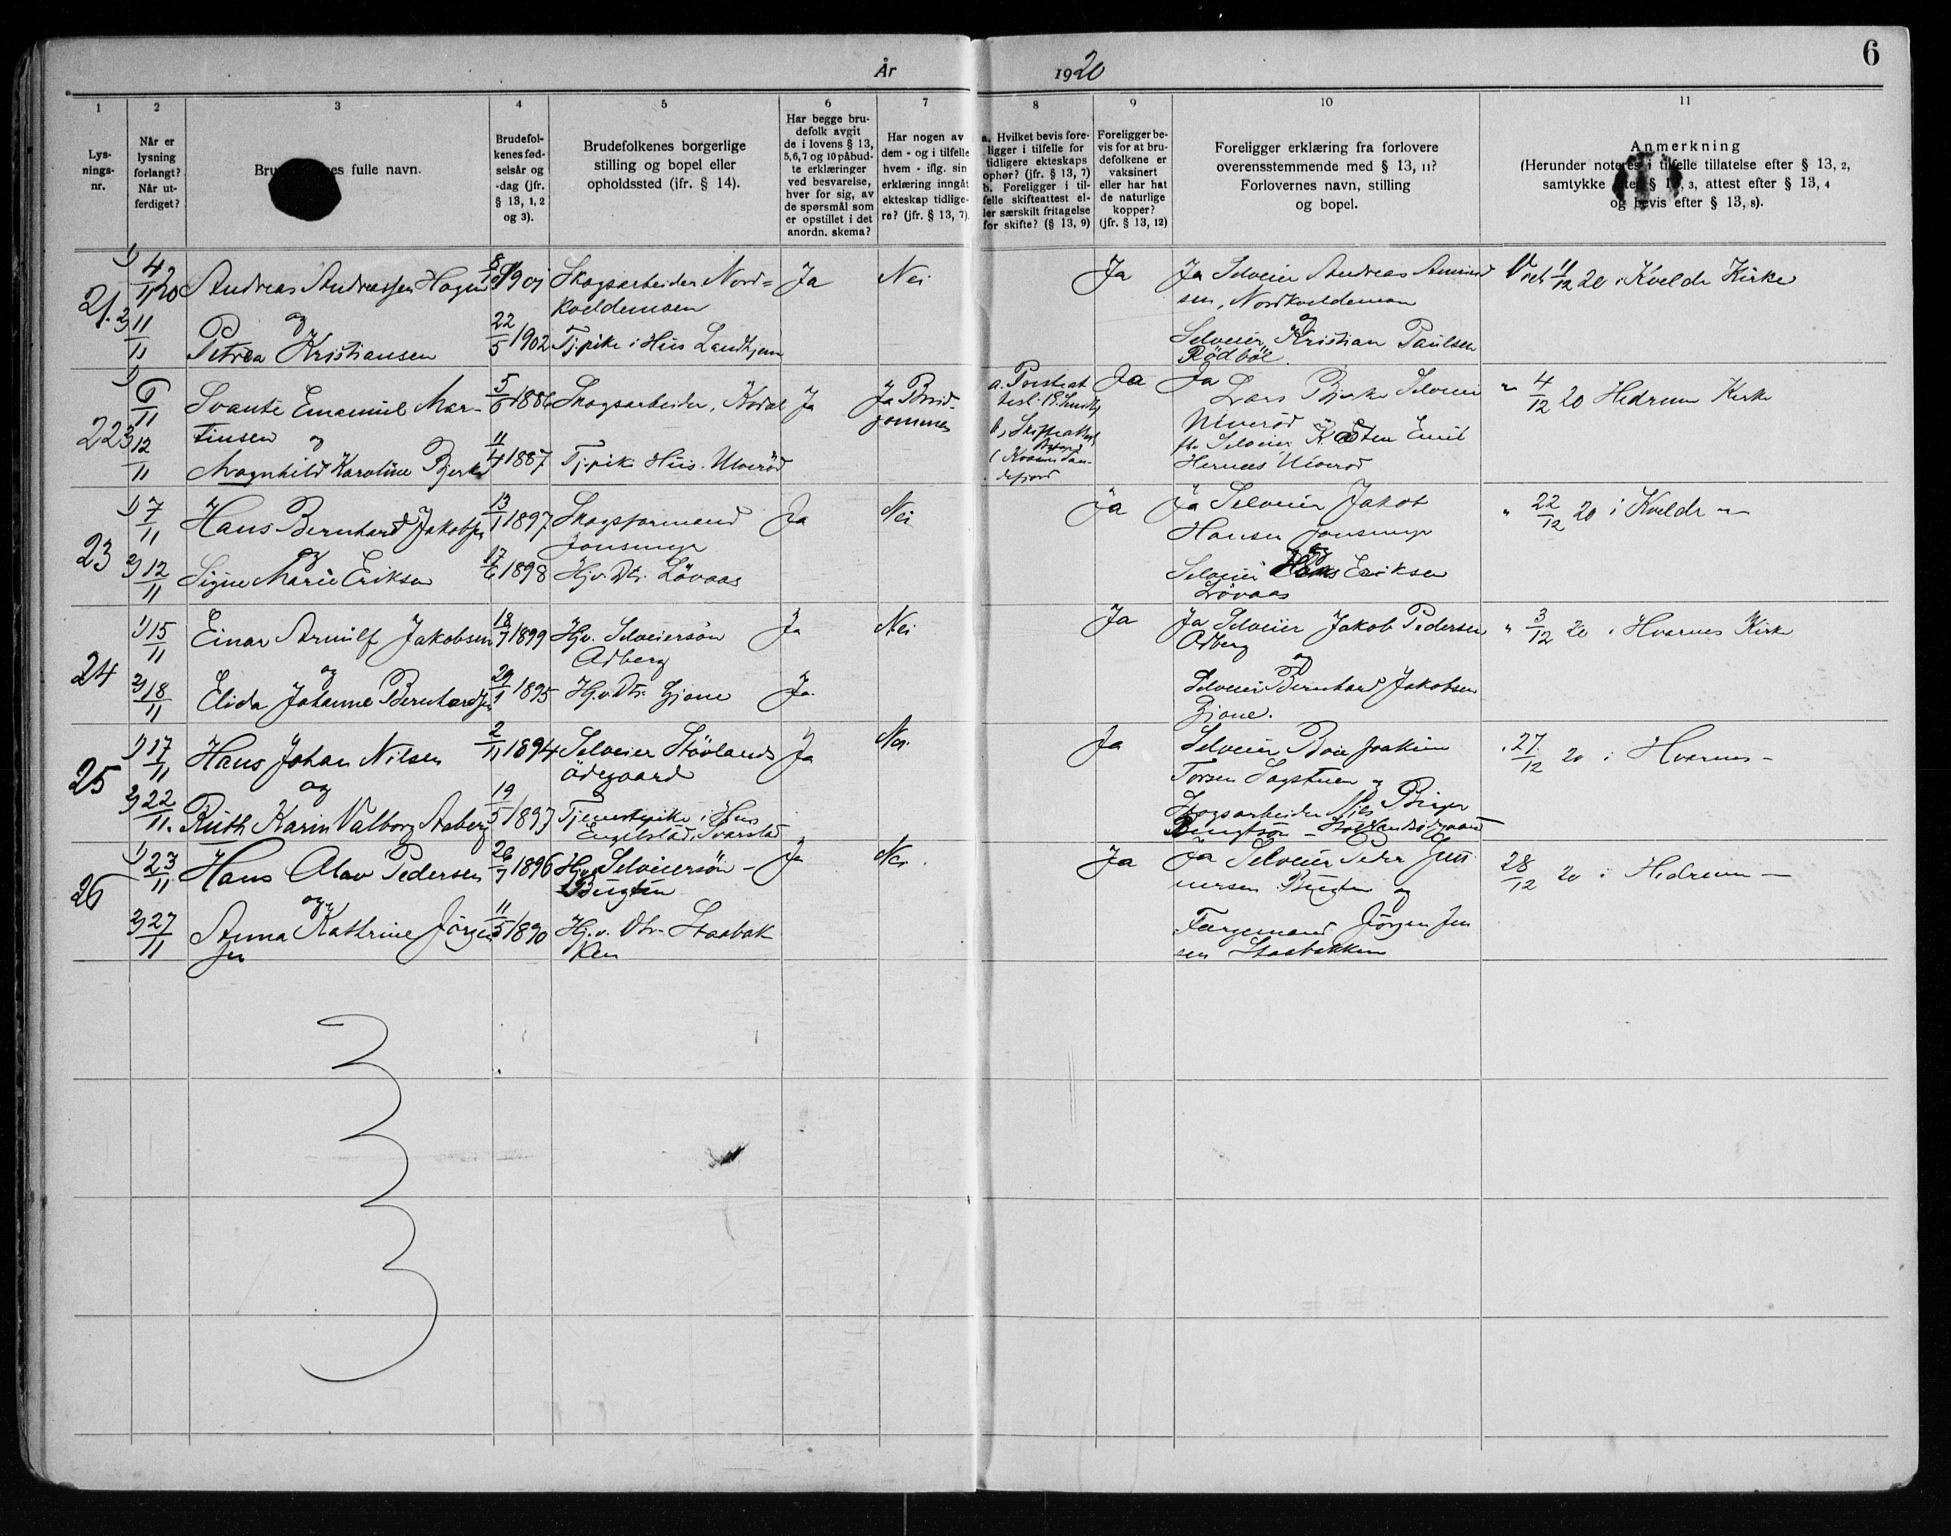 År 1920
6
1 2 3 4 5 6 7 8 9 10 11
Lys-
nings-
nr.
Når er
lysning
forlangt?
Når ut-
ferdiget?
fulle navn.
Brudefol-
kenes fød-
selsår og
-dag (jfr.
§ 13, 1, 2
og 3).
Brudefolkenes borgerlige
stilling og bopel eller
opholdssted (ifr. § 14).
Har begge bru-
defolk avgit
de i lovens § 13,
5,6,7 og 10 påbud-
te erklæringer
ved besvarelse,
hver for sig, av
de spørsmål som
er opstillet i det
anordn. skema?
Har nogen av
dem - og i tilfelle
hvem - iflg. sin
erklæring inngåt
ekteskap tidlige-
re? (jfr. § 13, 7).
a. Hvilket bevis fore-
ligger i tilfelle for
tidligere ekteskaps
ophør? (jfr. § 13, 7)
b. Foreligger i til-
felle skifteattest el-
ler særskilt fritagelse
for skifte? (§ 13, 9)
Foreligger be-
vis for at bru-
defolkene er
vaksinert
eller har hat
de naturlige
kopper?
(jfr. § 13, 12)
Foreligger erklæring fra forlovere
overensstemmende med § 13, 11?
Forlovernes navn, stilling
og bopel.
Anmerkning
(Herunder noteres i tilfelle tillatelse efter § 13, 2,
samtykke efter § 13, 3, attest efter § 13, 4
og bevis efter § 13, 8).
21.
1) 4/11 20
2) 11/11
Andreas Andreassen Hagen
og
Petrea Kristiansen
1901
22/5 1902
Skogsarbeider Nord=
kveldemoen
Tj.pike i Hus
Ja
Nei
Ja
Ja Selveier Andreas
sen, Nordkveldemoen
og
Selveier Kristian Paulsen
Rödböl
Viet 11/12 20 i Kvelde Kirke
22
1) 6/11
2) 12/11
Svante Emanuel Mar-
tinsen
og
Magnhild Karoline Bjerke
5/6 1886
11/4 1887
Skogsarbeider, Kodal
Tj.pike Hus. Ulveröd
Ja
Ja Brud-
gommen
a.
b, Skifteattest
Ja
Ja
Lars Bjerke Selveier
Ulveröd
Selveier Emil
Hernes Ulveröd
" 4/12 20 Hedrum Kirke
23
1) 7/11
2) 12/11
Hans Bernhard Jakobsen
og
Signe Marie Eriksen
13/1 1897
17/6 1898
Skogsformand
Jonsmyr
Hj.v. Dtr. Lövaas
Ja
Nei
Ja
Ja Selveier Jakob
Hansen Jonsmyr
og
Selveier Hans Eriksen
Lövaas
" 22/12 20 i Kvelde "
24
1) 15/11
2) 18/11
Einar Arnulf Jakobsen
og
Elida Johanne Bernhardsen
18/7 1899
29/1 1895
Hjv. Selveiersön
Odberg
Hj.v. Dtr. Gjone
Ja
Ja.
Nei
Ja
Ja Selveier Jakob Pedersen
Odberg
og
Selveier Bernhard Jakobsen
Gjone.
" 3/12 20 i Hvarnes Kirke
25
1) 17/11
2) 22/11.
Hans Johan Nilsen
og
Ruth Karin Valborg Aaberg
2/11 1894
19/5 1897
Selveier Stövlands
ödegaard
Tjenestepike i Hus
Engelstad, Svarstad
Ja
Nei
Ja
Selveier Boie Joakim
Torsen Sagstuen og
Skogsarbeider Nils Birger
Bengtson
" 27/12 20 i Hvarnes -
26
1) 23/11
2) 27/11
Hans Olav Pedersen
og
Anna Kathrine Jörgen-
sen
26/7 1896
11/5 1890
Hjv. Selveiersön -
Bugten
Hj.v. Dtr. Staabak
ken
Ja
Nei
Ja
Ja Selveier Peder Gun
nersen Bugten og
Jörgen Jen
sen Staabakken
28/12 20 i Hedrum -